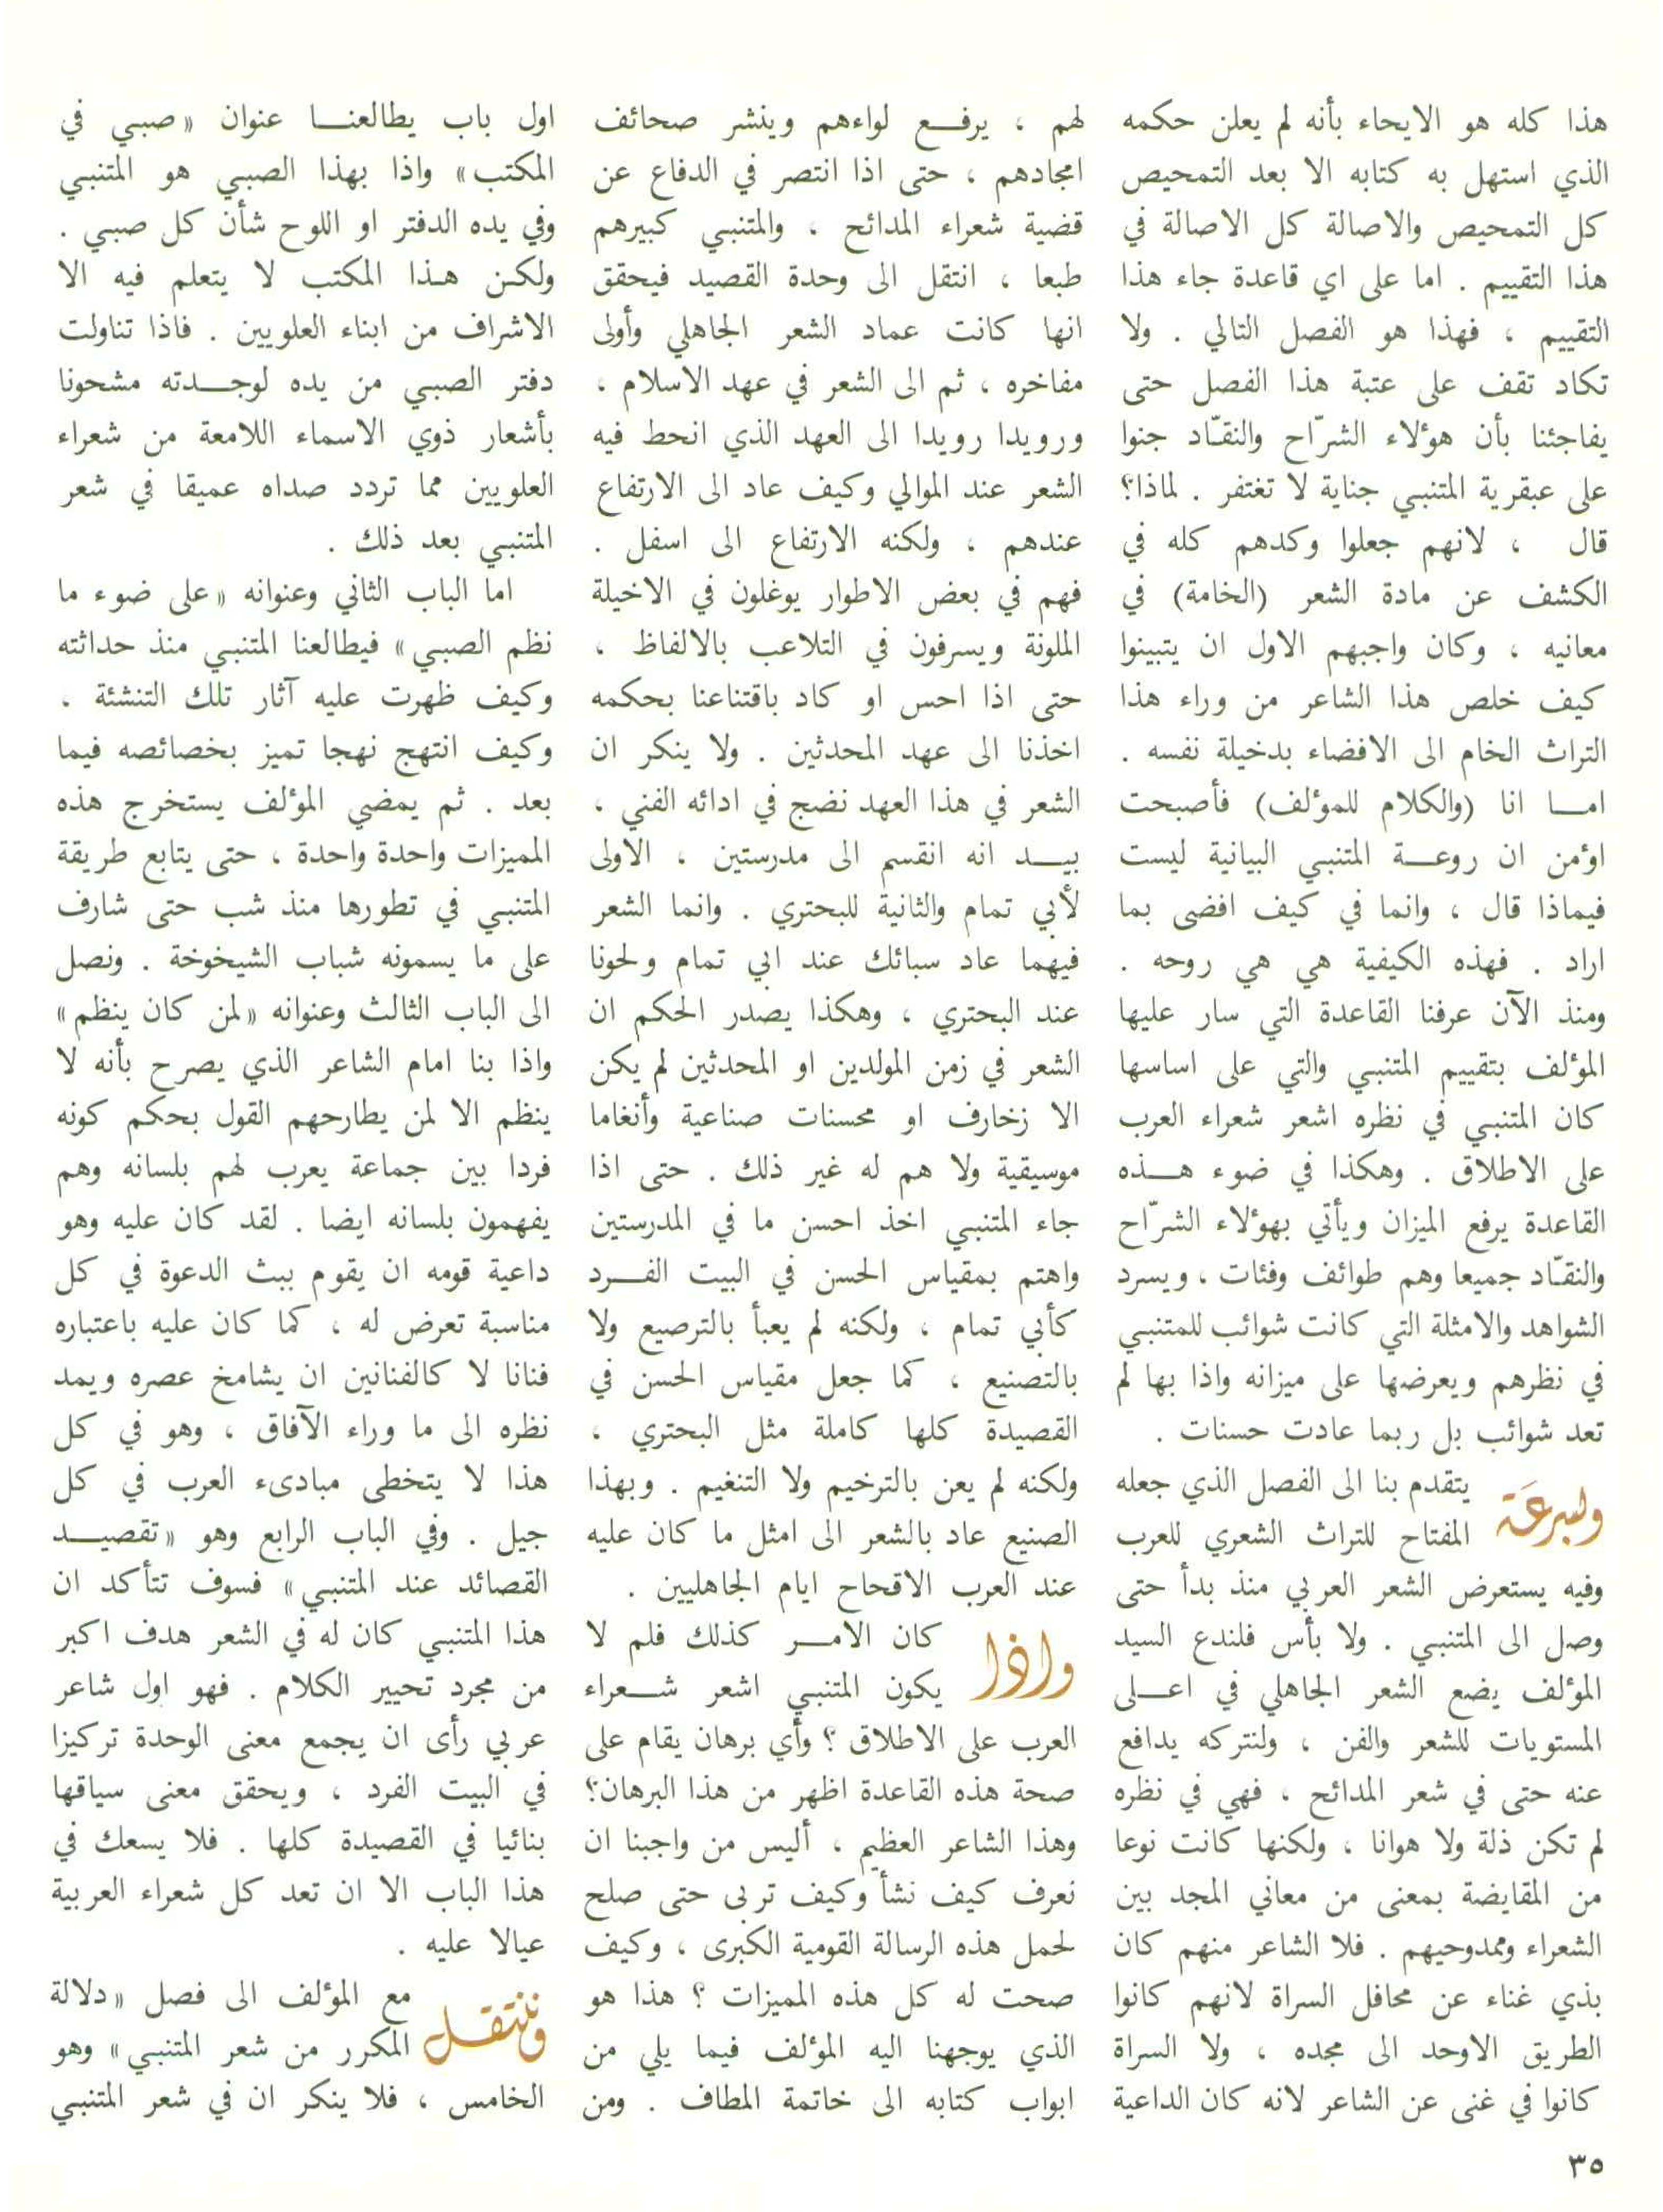 هذا كله هو الايحاء بأنه لم يعلن حكمه
الذي استهل به كتابه الا بعد التمحيص
كل التمحيص والاصالة كل الاصالة في
هذا التقييم . اما على اي قاعدة جاء هذا
التقييم ، فهذا هو الفصل التالي . ولا
تكاد تقف على عتبة هذا الفصل حتى
يفاجئنا بأن هؤلاء الشرّاح والنقّاد جنوا
على عبقرية المتنبي جناية لا تغتفر . لماذا؟
قال ، لانهم جعلوا وكدهم كله في
الكشف عن مادة الشعر (الخامة) في
معانيه ، وكان واجبهم الاول ان يتبينوا
كيف خلص هذا الشاعر من وراء هذا
التراث الخام الى الافضاء بدخيلة نفسه .
امـا انا (والكلام للمؤلف) فأصبحت
اؤمن ان روعـة المتنبي البيانية ليست
فيماذا قال ، وانما في كيف افضى بما
اراد . فهذه الكيفية هي هي روحه .
ومنذ الآن عرفنا القاعدة التي سار عليها
المؤلف بتقييم المتنبي والتي على اساسها
كان المتنبي في نظره اشعر شعراء العرب
على الاطلاق . وهكذا في ضوء هـذه
القاعدة يرفع الميزان ويأتي بهؤلاء الشرّاح
والنقّاد جميعا وهم طوائف وفئات ، ويسرد
الشواهد والامثلة التي كانت شوائب للمتنبي
في نظرهم ويعرضها على ميزانه واذا بها لم
تعد شوائب بل ربما عادت حسنات .
وبسرعة يتقدم بنا الى الفصل الذي جعله
المفتاح للتراث الشعري للعرب
وفيه يستعرض الشعر العربي منذ بدأ حتى
وصل الى المتنبي . ولا بأس فلندع السيد
المؤلف يضع الشعر الجاهلي في اعـلى
المستويات للشعر والفن ، ولنتركه يدافع
عنه حتى في شعر المدائح ، فهي في نظره
لم تكن ذلة ولا هوانا ، ولكنها كانت نوعا
من المقايضة بمعنى من معاني المجد بين
الشعراء وممدوحيهم . فلا الشاعر منهم كان
بذي غناء عن محافل السراة لانهم كانوا
الطريق الاوحد الى مجده ، ولا السراة
كانوا في غنى عن الشاعر لانه كان الداعية
لهم ، يرفـع لواءهم وينشر صحائف
امجادهم ، حتى اذا انتصر في الدفاع عن
قضية شعراء المدائح ، والمتنبي كبيرهم
طبعا ، انتقل الى وحدة القصيد فيحقق
انها كانت عماد الشعر الجاهلي وأولى
مفاخره ، ثم الى الشعر في عهد الاسلام ،
ورويدا رويدا الى العهد الذي انحط فيه
الشعر عند الموالي وكيف عاد الى الارتفاع
عندهم ، ولكنه الارتفاع الى اسفل .
فهم في بعض الاطوار يوغلون في الاخيلة
الملونة ويسرفون في التلاعب بالالفاظ ،
حتى اذا احس او كاد باقتناعنا بحكمه
اخذنا الى عهد المحدثين . ولا ينكر ان
الشعر في هذا العهد نضج في ادائه الفني ،
بيـد انه انقسم الى مدرستين ، الاولى
لأبي تمام والثانية للبحتري . وانما الشعر
فيهما عاد سبائك عند ابي تمام ولحونا
عند البحتري ، وهكذا يصدر الحكم ان
الشعر في زمن المولدين او المحدثين لم يكن
الا زخارف او محسنات صناعية وأنغاما
موسيقية ولا هم له غير ذلك . حتى اذا
جاء المتنبي اخذ احسن ما في المدرستين
واهتم بمقياس الحسن في البيت الفـرد
كأبي تمام ، ولكنه لم يعبأ بالترصيع ولا
بالتصنيع ، كما جعل مقياس الحسن في
القصيدة كلها كاملة مثل البحتري ،
ولكنه لم يعن بالترخيم ولا التنغيم . وبهذا
الصنيع عاد بالشعر الى امثل ما كان عليه
عند العرب الاقحاح ايام الجاهليين .
واذا كان الامـر كذلك فلم لا
يكون المتنبي اشعر شـعراء
العرب على الاطلاق ؟ وأي برهان يقام على
صحة هذه القاعدة اظهر من هذا البرهان؟
وهذا الشاعر العظيم ، أليس من واجبنا ان
نعرف كيف نشأ وكيف تربى حتى صلح
لحمل هذه الرسالة القومية الكبرى ، وكيف
صحت له كل هذه المميزات ؟ هذا هو
الذي يوجهنا اليه المؤلف فيما يلي من
ابواب كتابه الى خاتمة المطاف . ومن
اول باب يطالعنـا عنوان «صبي في
المكتب» واذا بهذا الصبي هو المتنبي
وفي يده الدفتر او اللوح شأن كل صبي .
ولكن هذا المكتب لا يتعلم فيه الا
الاشراف من ابناء العلويين . فاذا تناولت
دفتر الصبي من يده لوجـدته مشحونا
بأشعار ذوي الاسماء اللامعة من شعراء
العلويين مما تردد صداه عميقا في شعر
المتنبي بعد ذلك .
اما الباب الثاني وعنوانه «على ضوء ما
نظم الصبي» فيطالعنا المتنبي منذ حداثته
وكيف ظهرت عليه آثار تلك التنشئة ،
وكيف انتهج نهجا تميز بخصائصه فيما
بعد . ثم يمضي المؤلف يستخرج هذه
المميزات واحدة واحدة ، حتى يتابع طريقة
المتنبي في تطورها منذ شب حتى شارف
على ما يسمونه شباب الشيخوخة . ونصل
الى الباب الثالث وعنوانه «لمن كان ينظم»
واذا بنا امام الشاعر الذي يصرح بأنه لا
ينظم الا لمن يطارحهم القول بحكم كونه
فردا بين جماعة يعرب لهم بلسانه وهم
يفهمون بلسانه ايضا . لقد كان عليه وهو
داعية قومه ان يقوم ببث الدعوة في كل
مناسبة تعرض له ، كما كان عليه باعتباره
فنانا لا كالفنانين ان يشامخ عصره ويمد
نظره الى ما وراء الآفاق ، وهو في كل
هذا لا يتخطى مبادىء العرب في كل
جيل . وفي الباب الرابع وهو «تقصيـد
القصائد عند المتنبي» فسوف تتأكد ان
هذا المتنبي كان له في الشعر هدف اكبر
من مجرد تحيير الكلام . فهو اول شاعر
عربي رأى ان يجمع معنى الوحدة تركيزا
في البيت الفرد ، ويحقق معنى سياقها
بنائيا في القصيدة كلها . فلا يسعك في
هذا الباب الا ان تعد كل شعراء العربية
عيالا عليه .
وننتقل مع المؤلف الى فصل «دلالة
المكرر من شعر المتنبي» وهو
الخامس ، فلا ينكر ان في شعر المتنبي
٣٥